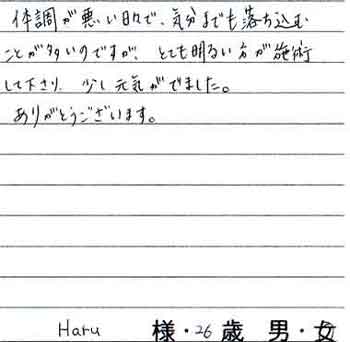 体調が悪い日々で、気分までも落ち込む
ことが多いのですが、とても明るい方が施術
して下さり、少し元気がでました。
ありがとうございます。
Haru 様・26歳 男・女